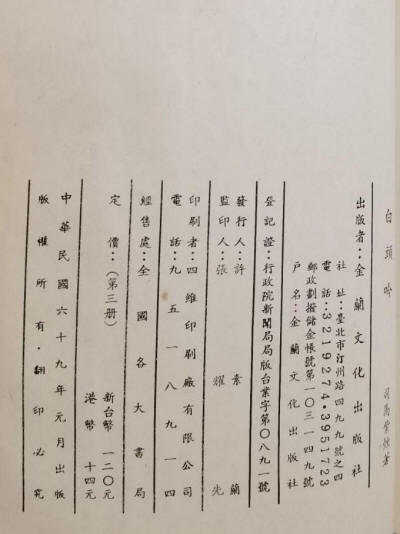 白頭吟
司馬紫烟著
出版者：金蘭文化出版社
社址：臺北市汀州路四九九號之四
電話：3219274·3951723
郵政劃撥儲金帳號第一〇三一四九號
戶名：金蘭文化出版社
登記證：行政院新聞局局版台業字第〇八九一號
發行人：許素蘭
監印人：張耀先
印刷者：四維印刷廠有限公司
電話：九五一八九一四
經售處：全國各大書局
定價：（第三册）新台幣一二〇元
港幣十四元
中華民國六十九年元月出版
版權所有·翻印必究